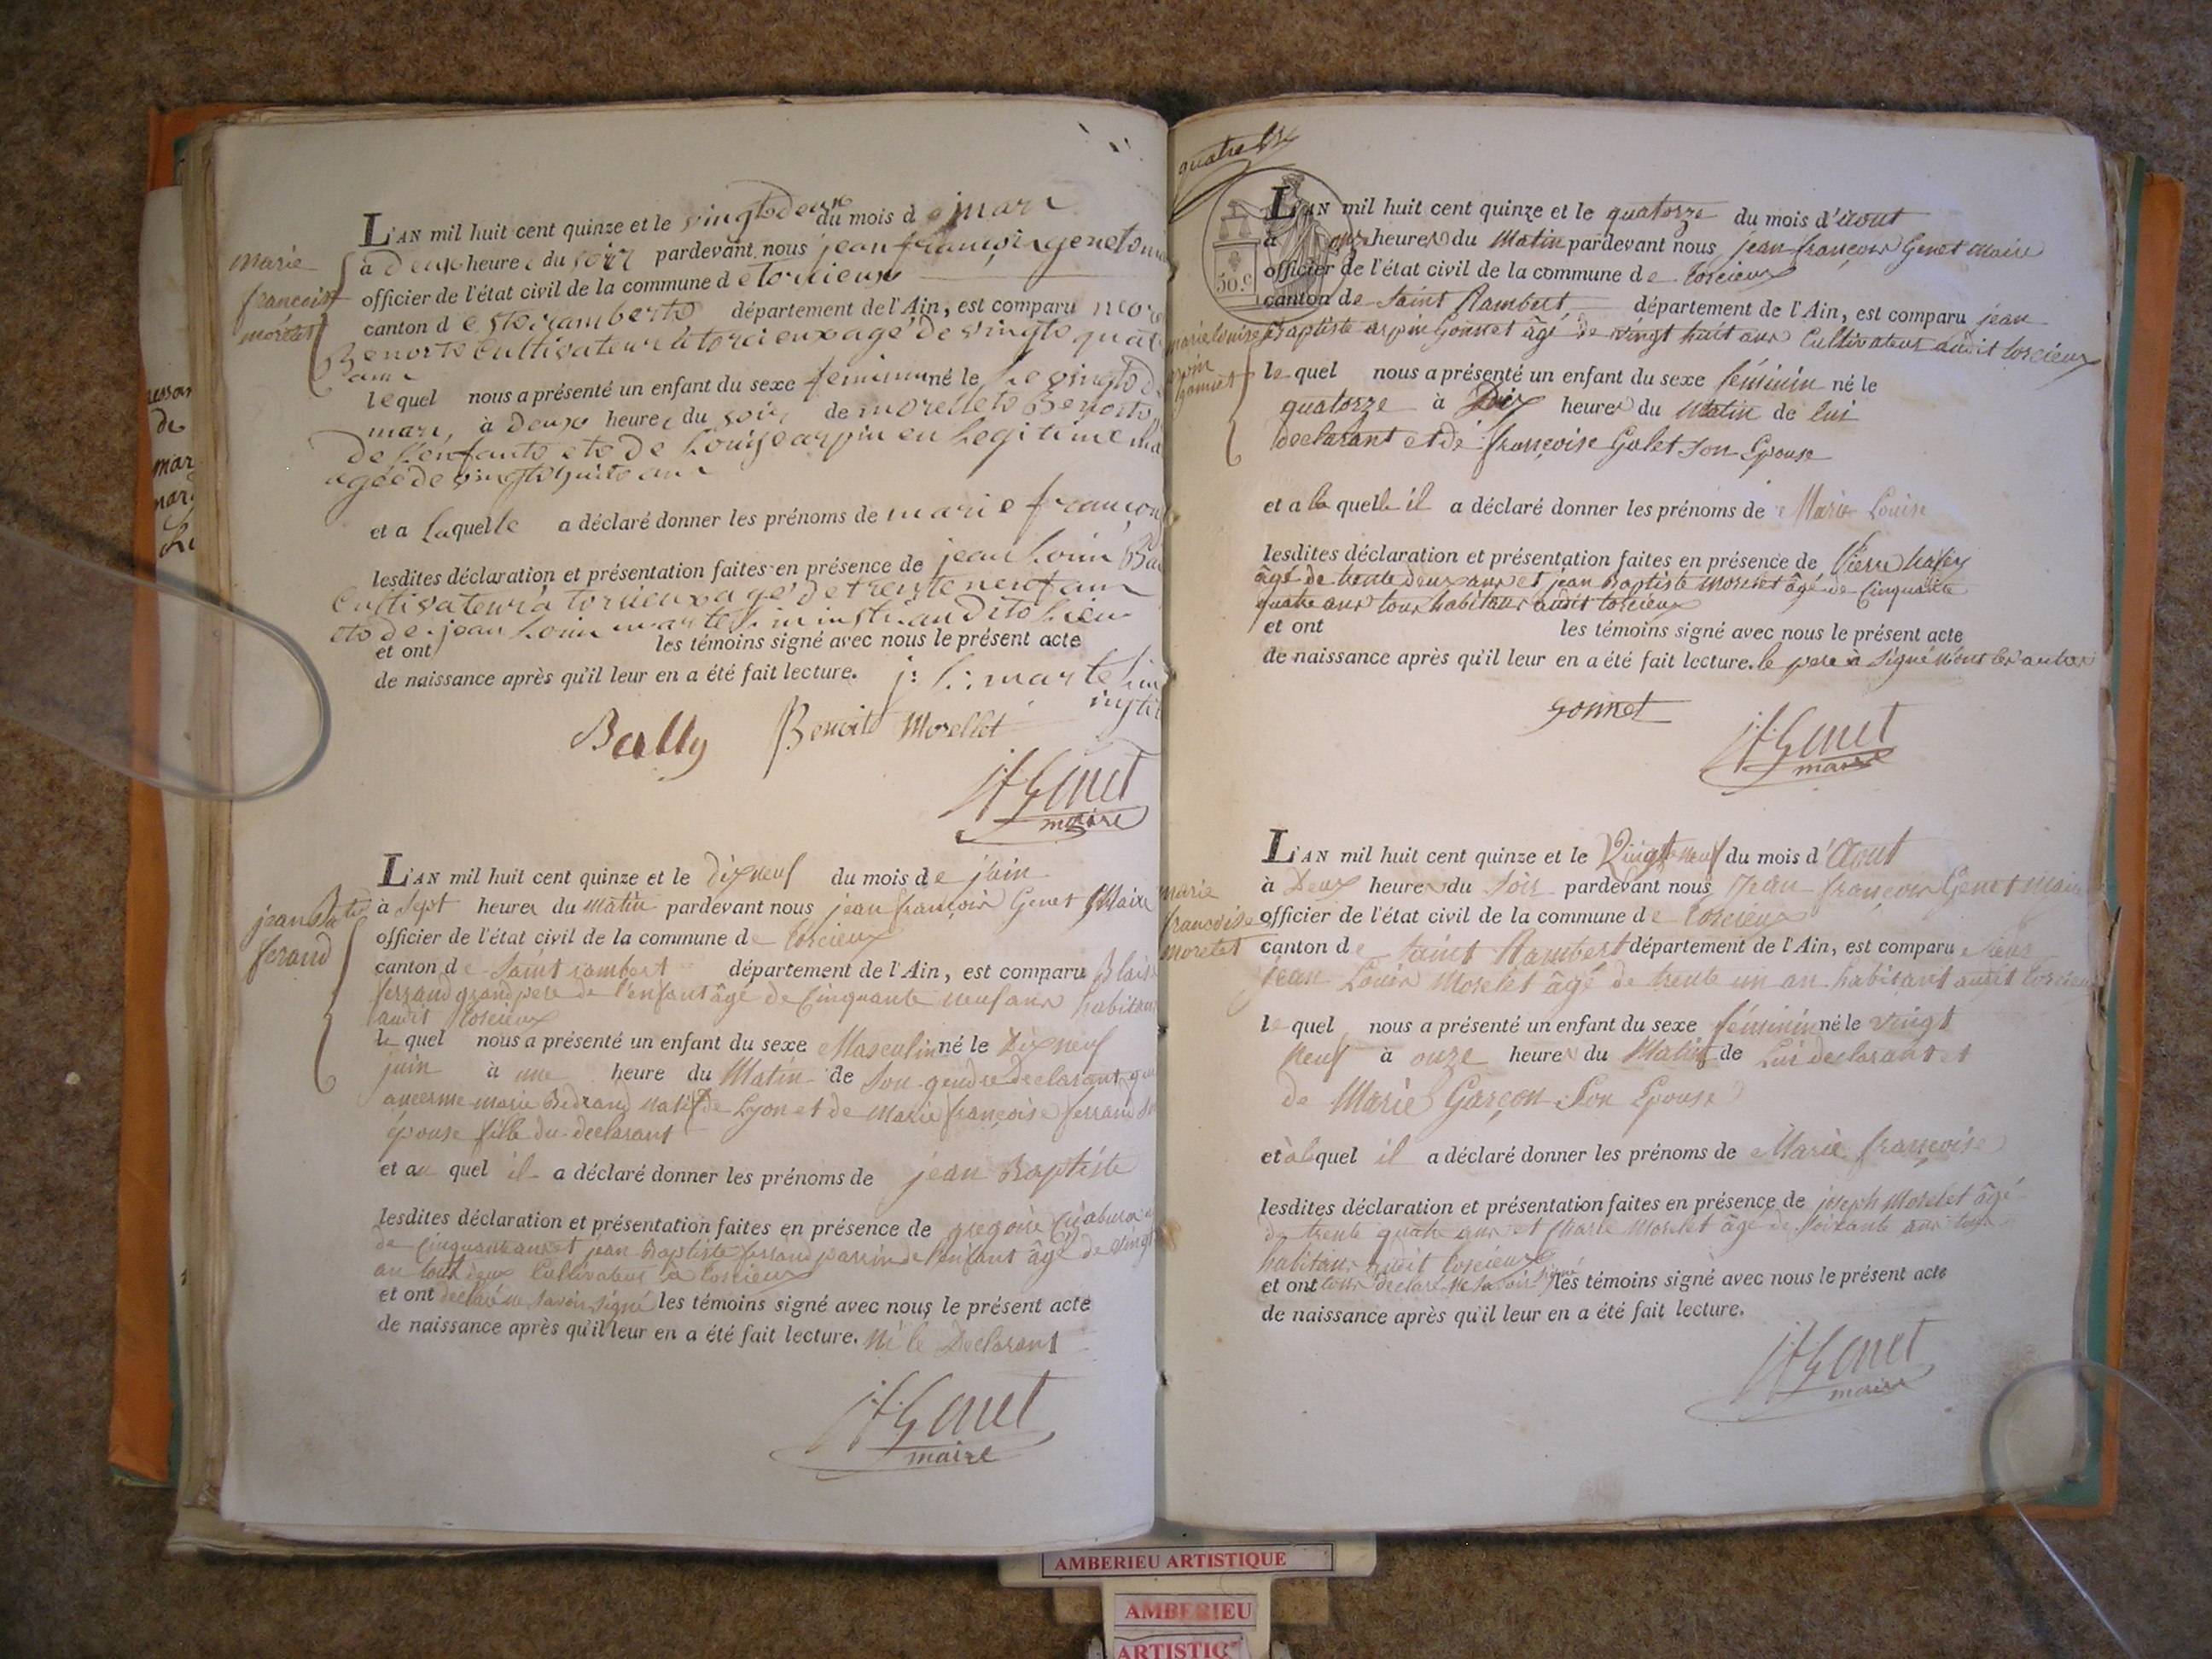 marie
françoise
morétet
L'AN mil huit cent quinze et le vingt deux du mois de mars
à deux heures du soir pardevant nous jean françois genet
officier de l'état civil de la commune de torcieux
canton de st rambert département de l'Ain, est comparu
Benoit Cultivateur à torcieux agé de vingt quatre
ans
lequel nous a présenté un enfant du sexe feminin né le vingt
mars, à deux heures du soir de morellet Benoit
de l'enfant et de Louise arpin en legitime
agée de vingt huit ans
et a laquelle a déclaré donner les prénoms de marie
lesdites déclaration et présentation faites en présence de jean Louis
Cultivateur à torcieux agé de trente neuf ans
et de jean Louis martelin audit Lieu
et ont les témoins signé avec nous le présent acte
de naissance après qu'il leur en a été fait lecture. j: L: martelin
Bally Benoit Morellet
jf Genet
maire
jean Bate
ferand
L'AN mil huit cent quinze et le dix neuf du mois de juin
à Sept heures du Matin pardevant nous jean françois Genet Maire
officier de l'état civil de la commune de torcieux
canton de Saint rambert département de l'Ain, est comparu Blaise
ferrand grand pere de l'enfant âgé de Cinquante neuf ans habitant
audit torcieux
le quel nous a présenté un enfant du sexe Masculin né le Dix neuf
juin à une heure du Matin de Son gendre declarant
marie Bedrand natif de Lyon et de Marie françoise ferrand
épouse fille du declarant
et au quel il a déclaré donner les prénoms de jean Baptiste
lesdites déclaration et présentation faites en présence de gregoire
de Cinquante ans et jean Baptiste ferrand parrin de l'enfant âgé de vingt
an tout deux Cultivateur à torcieux
et ont declaré ne savoir signé les témoins signé avec nous le présent acte
de naissance après qu'il leur en a été fait lecture. Ni le Declarant
jf Genet
maire
quatre
50.c
marie louise
arpin
gonnet
L'AN mil huit cent quinze et le quatorze du mois d'aout
à heures du Matin pardevant nous jean françois Genet Maire
officier de l'état civil de la commune de torcieux
canton de Saint Rambert département de l'Ain, est comparu jean
Baptiste arpin Gonnet âgé de vingt huit ans Cultivateur audit torcieux
le quel nous a présenté un enfant du sexe féminin né le
quatorze à Dix heures du Matin de lui
declarant et de françoise Galet son Epouse
et a la quelle il a déclaré donner les prénoms de Marie Louise
lesdites déclaration et présentation faites en présence de Pierre
âgé de trente deux ans et jean Baptiste Morelet âgé de Cinquante
quatre ans tous habitans audit torcieux
et ont les témoins signé avec nous le présent acte
de naissance après qu'il leur en a été fait lecture. le pere à signé
gonnet
jf Genet
maire
marie
francoise
moretet
L'AN mil huit cent quinze et le Vingt neuf du mois d'Aout
à Deux heures du Soir pardevant nous Jean françois Genet Maire
officier de l'état civil de la commune de torcieux
canton de Saint Rambert département de l'Ain, est comparu sieur
jean Louis Morelet âgé de trente un an habitant audit torcieux
le quel nous a présenté un enfant du sexe féminin né le vingt
neuf à onze heures du Matin de Lui declarant et
de Marie Garçon Son Epouse
et à la quel il a déclaré donner les prénoms de Marie françoise
lesdites déclaration et présentation faites en présence de joseph Morelet âgé
de trente quatre ans et Morelet âgé de Soixante ans tous
habitans audit torcieux
et ont tous déclaré ne savoir signé les témoins signé avec nous le présent acte
de naissance après qu'il leur en a été fait lecture.
jf Genet
maire
AMBERIEU ARTISTIQUE
AMBERIEU
ARTISTIQ